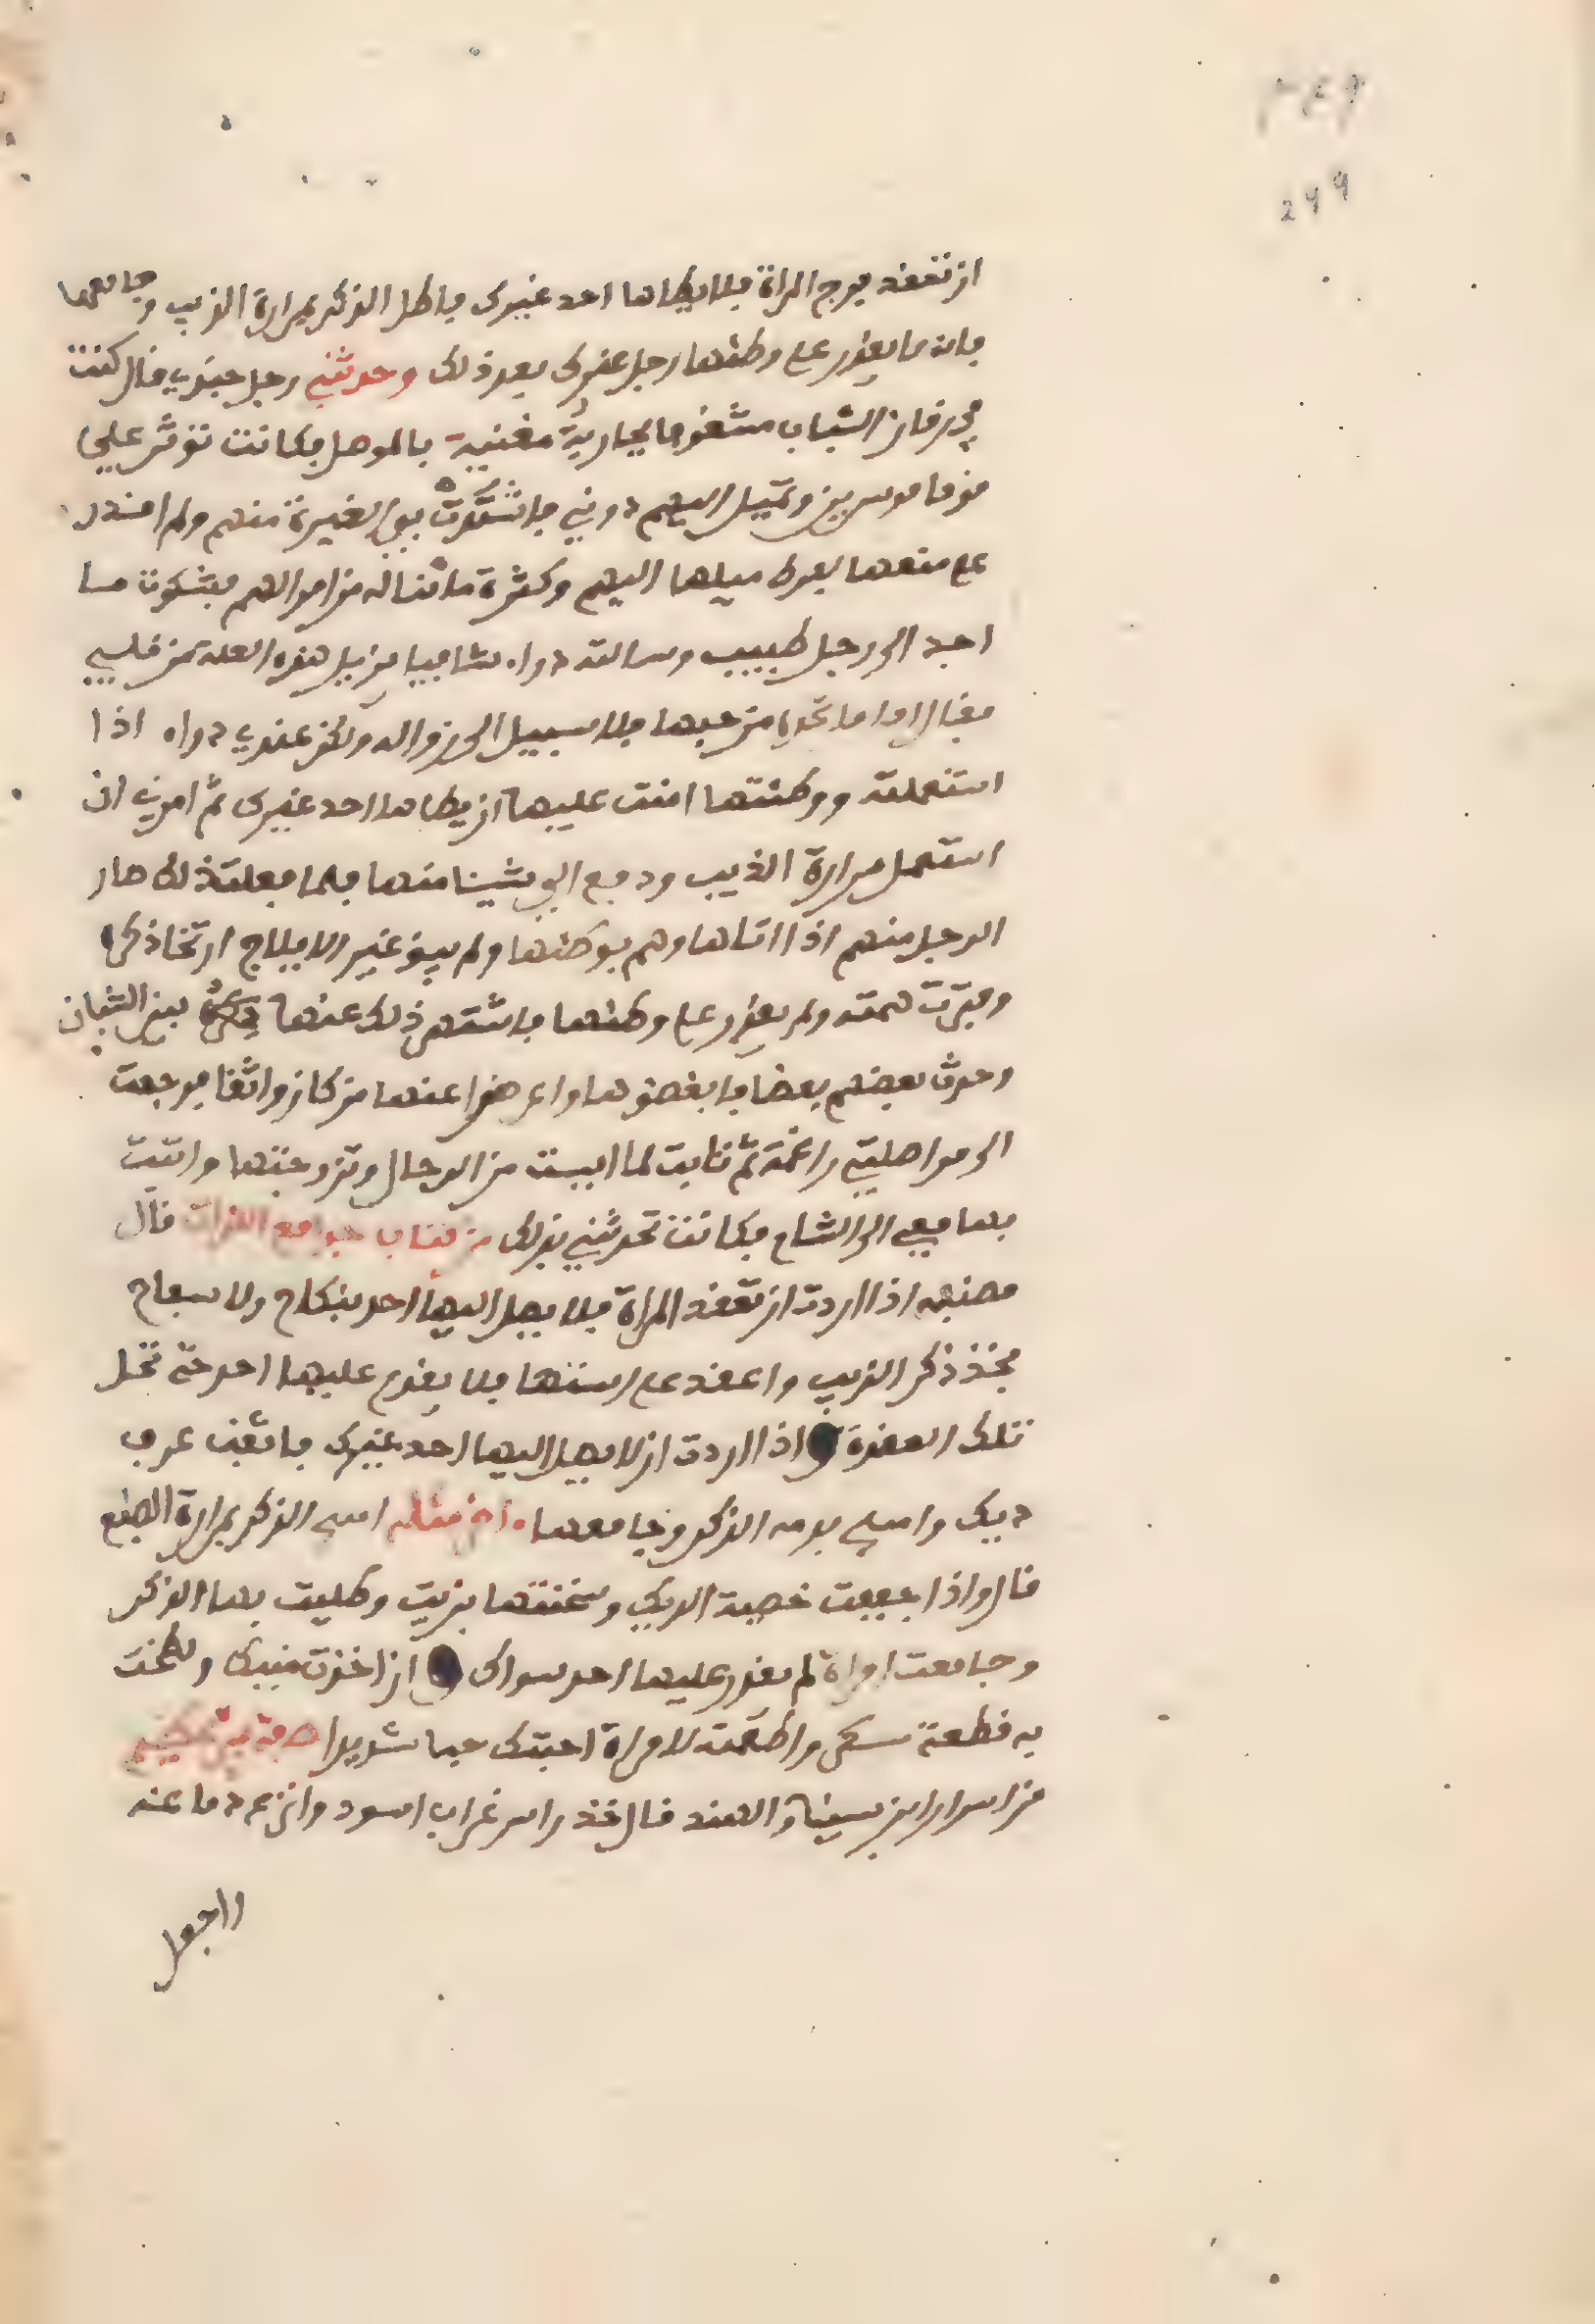 249
ان تعقد فرج المراة فلا يطاها احد غيرك فاطل الذكر بمرارة الذيب وجامعها
فانه ما يقدر على وطئها رجل غيرك بعد ذلك وحدثني رجل جندي قال كنت
في زمان الشباب مشغوفا بجارية مغنية بالموصل فكانت تؤثر علي
قوما موسرين وتميل اليهم دوني فاشتدت بي الغيرة منهم ولم اقدر
على منعها لفرط ميلها اليهم وكثرة ما تناله من اموالهم فشكوت ما
اجد الى رجل طبيب وسالته دواء شافيا يزيل هذه العلة من قلبي
فقال اما ما تجد من حبها فلا سبيل الى زواله ولكن عندي دواء اذا
استعملته ووطئتها امنت عليها ان يطاها احد غيرك ثم امرني ان
استعمل مرارة الذيب ودفع الي شيئا منها فلما فعلت ذلك صار
الرجل منهم اذا اتاها وهم بوطئها ولم يبق غير الايلاج ارتخا ذكره
وفترت همته ولم يقدر على وطئها فاشتهر ذلك عنها بين الشبان
وحدث بعضهم بعضا فابغضوها واعرضوا عنها من كان واثقا فرجعت
الى مواصلتي راغمة ثم تابت لما ايست من الرجال وتزوجتها واتيت
بها معي الى الشام فكانت تحدثني بذلك من كتاب جوامع اللذات قال
مصنفه اذا اردت ان تعقد المراة فلا يصل اليها احد بنكاح ولا سفاح
فخذ ذكر الذيب واعقد على اسمها فلا يقدر عليها احد حتى تحل
تلك العقدة اذا اردت ان لا يصل اليها احد غيرك فاثقب عرف
ديك وامسح بدمه الذكر وجامعها امسح الذكر بمرارة الضبع
قال واذا جففت خصية الديك وسحقتها بزيت وطليت بها الذكر
وجامعت امراة لم يقدر عليها احد سواك ان اخذت منيك ولطخت
به قطعة سكر واطعمته لامراة احبتك حبا شديدا
من اسرار ابن سينا والهند قال خذ راس غراب اسود وانزع دماغه
واجعل